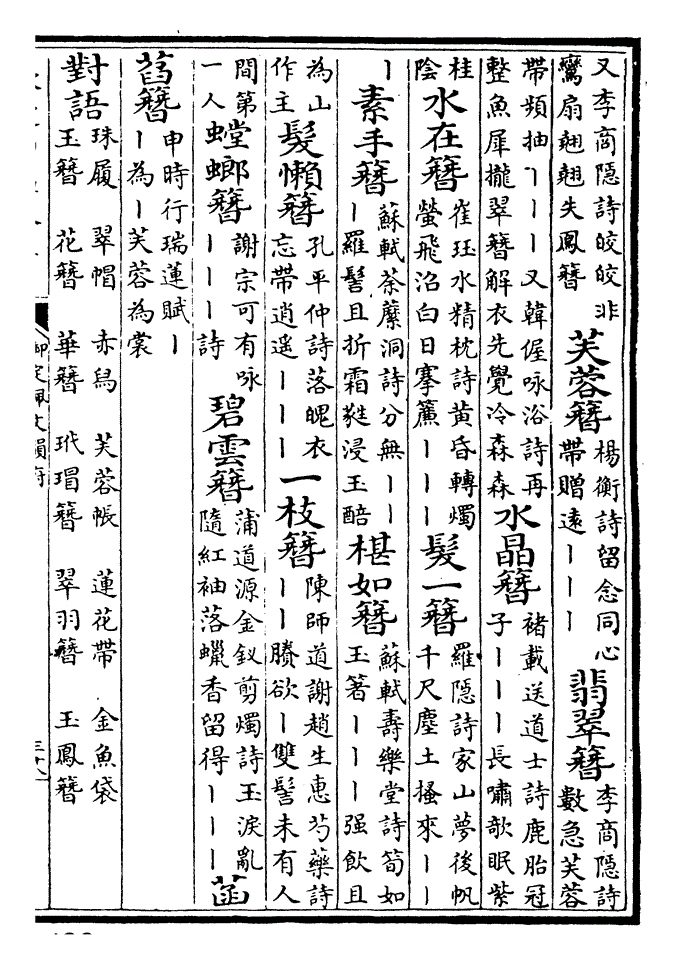 又李商隱詩皎皎非
鸞扇翹翹失鳳簪
芙蓉簪
楊衡詩留念同心
帶贈遠｜｜｜
翡翠簪
李商隱詩
數急芙蓉
帶頻抽｜｜｜又韓偓咏浴詩再
整魚犀攏翠簪解衣先覺冷森森
水晶簪
褚載送道士詩鹿胎冠
子｜｜｜長嘯歌眠紫
桂
陰
水在簪
崔珏水精枕詩黄昏轉燭
螢飛沼白日搴簾｜｜｜
髮一簪
羅隱詩家山夢後帆
千尺塵土搔來｜｜
｜
素手簪
蘇軾荼蘼洞詩分無｜｜
｜羅髻且折霜蕤浸玉醅
椹如簪
蘇軾壽樂堂詩筍如
玉箸｜｜｜强飲且
為山
作主
髮懶簪
孔平仲詩落魄衣
忘帶逍遥｜｜｜
一枝簪
陳師道謝趙生惠芍藥詩
｜｜賸欲｜雙髻未有人
間第
一人
螳螂簪
謝宗可有咏
｜｜｜詩
碧雲簪
蒲道源金釵剪燭詩玉淚亂
隨紅袖落蠟香留得｜｜｜
菡
萏簪
申時行瑞蓮賦｜
｜為｜芙蓉為裳
對語
珠履 翠帽 赤舄 芙蓉帳 蓮花帶 金魚袋
玉簪 花簪 華簪 玳瑁簪 翠羽簪 玉鳳簪
御定佩文韻府
三十八